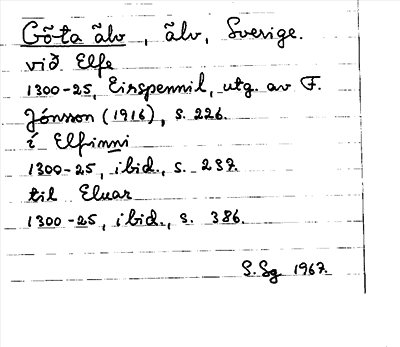 Göta älv, älv, Sverige.
við Elfe
1300-25, Eirspennil, utg. av F.
Jónsson (1916), s. 226.
í Elfinni
1300-25, ibid., s. 237.
til Eluar
1300-25, ibid., s. 386.
S.Sg 1967.